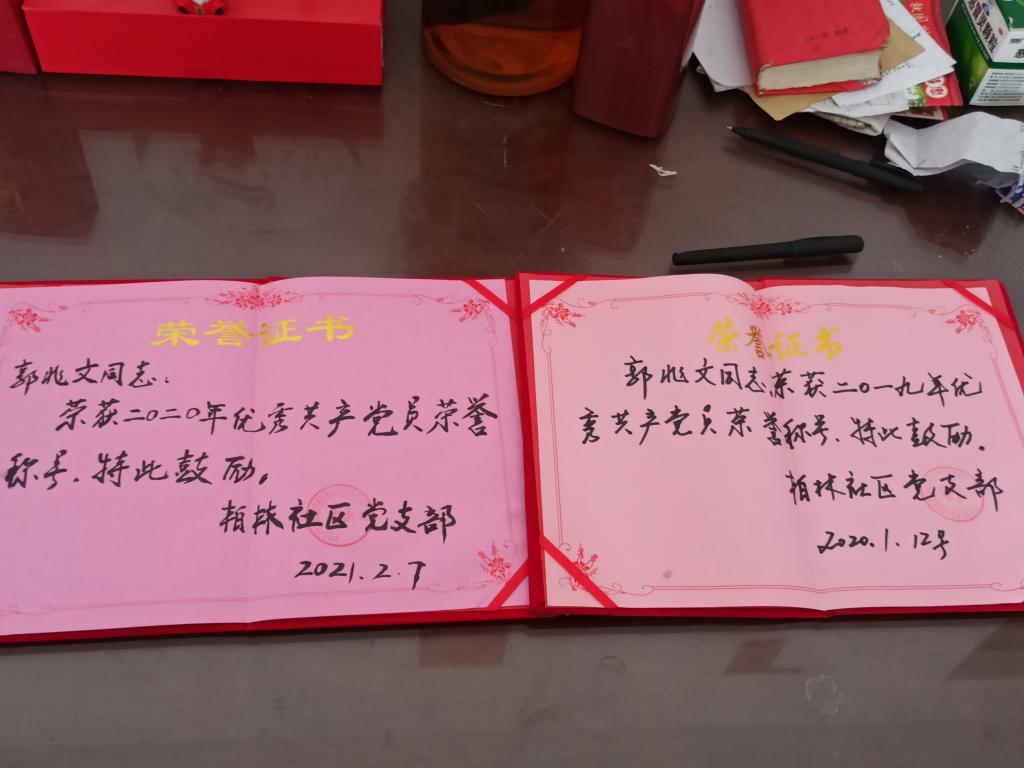 荣誉证书
郭兆文同志：
荣获二〇二〇年优秀共产党员荣誉
称号，特此鼓励。
柏林社区党支部
2021.2.7
荣誉证书
郭兆文同志荣获二〇一九年优
秀共产党员荣誉称号，特此鼓励。
柏林社区党支部
2020.1.12号